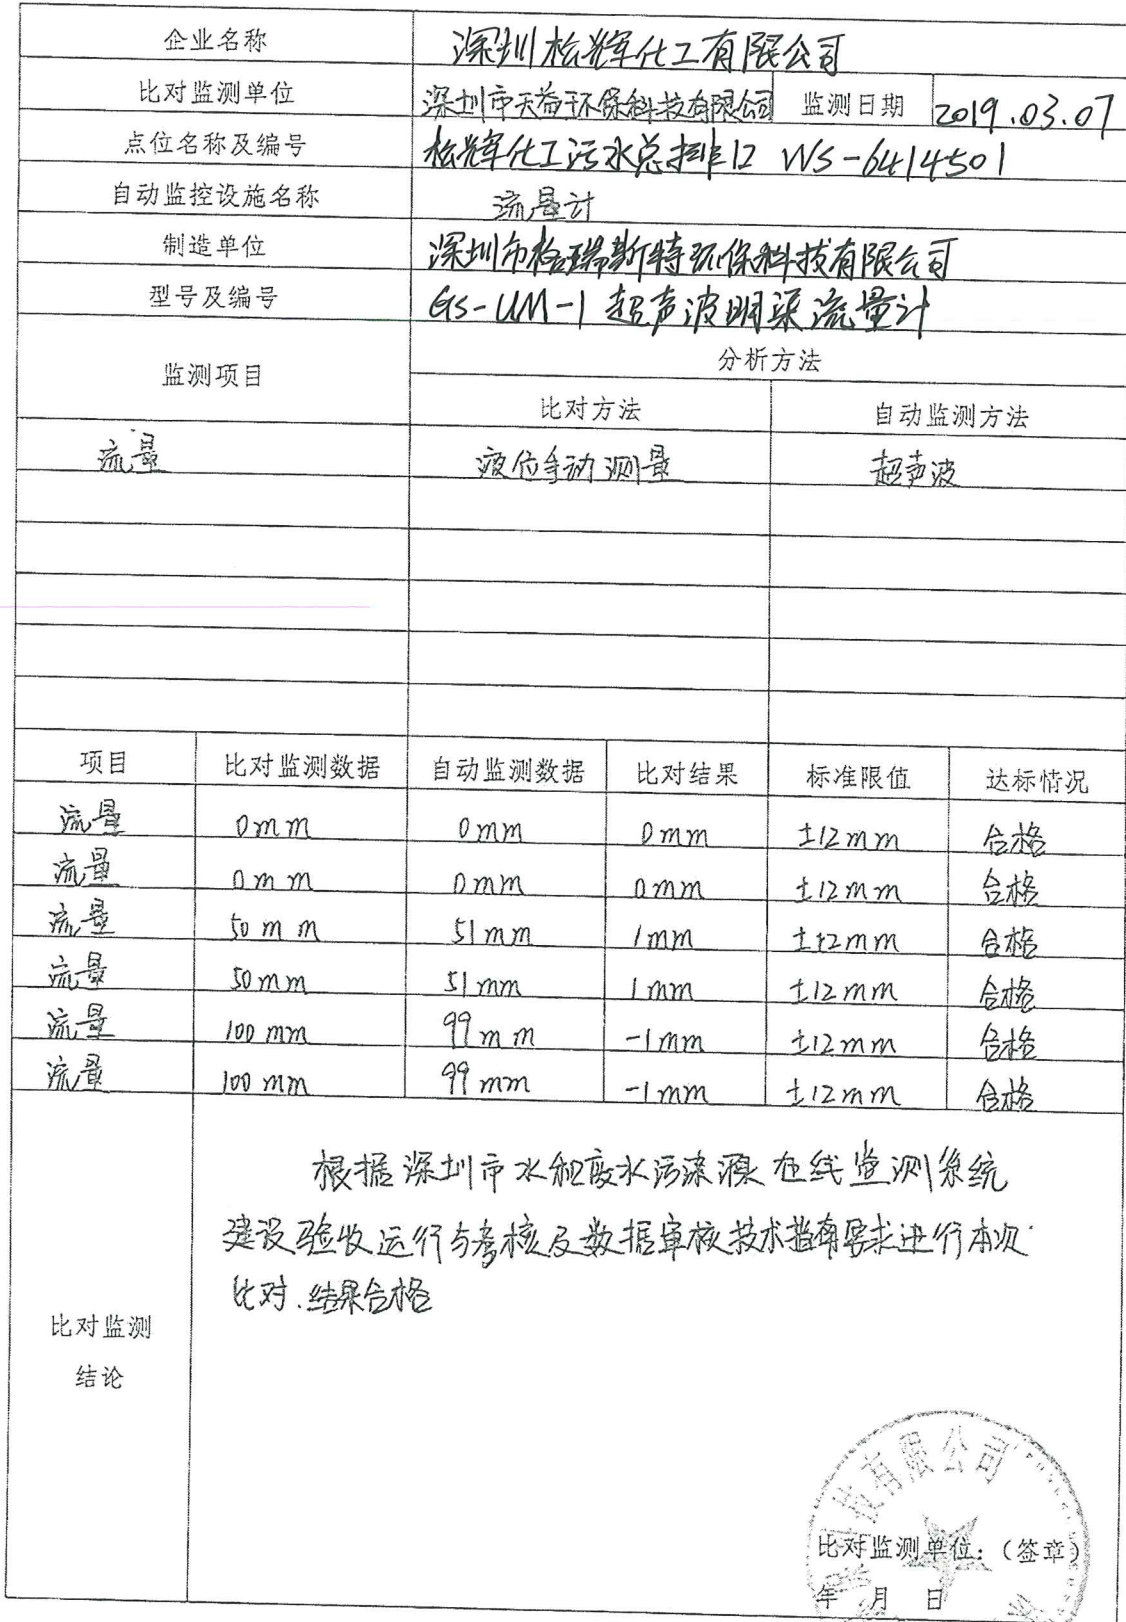 企业名称 深圳松辉化工有限公司
比对监测单位 深圳市天益环保科技有限公司 监测日期 2019.03.07
点位名称及编号 松辉化工污水总排口 WS-6414501
自动监控设施名称 流量计
制造单位 深圳市格瑞斯特环保科技有限公司
型号及编号 GS-UM-1 超声波明渠流量计
监测项目 分析方法
比对方法 自动监测方法
流量 液位手动测量 超声波
项目 比对监测数据 自动监测数据 比对结果 标准限值 达标情况
流量 0mm 0mm 0mm ±12mm 合格
流量 0mm 0mm 0mm ±12mm 合格
流量 50mm 51mm 1mm ±12mm 合格
流量 50mm 51mm 1mm ±12mm 合格
流量 100mm 99mm -1mm ±12mm 合格
流量 100mm 99mm -1mm ±12mm 合格
根据深圳市水和废水污染源在线监测系统
建设验收运行与考核及数据审核技术指南要求进行本次
比对.结果合格
比对监测
结论
科技有限公司
比对监测单位:（签章）
年 月 日